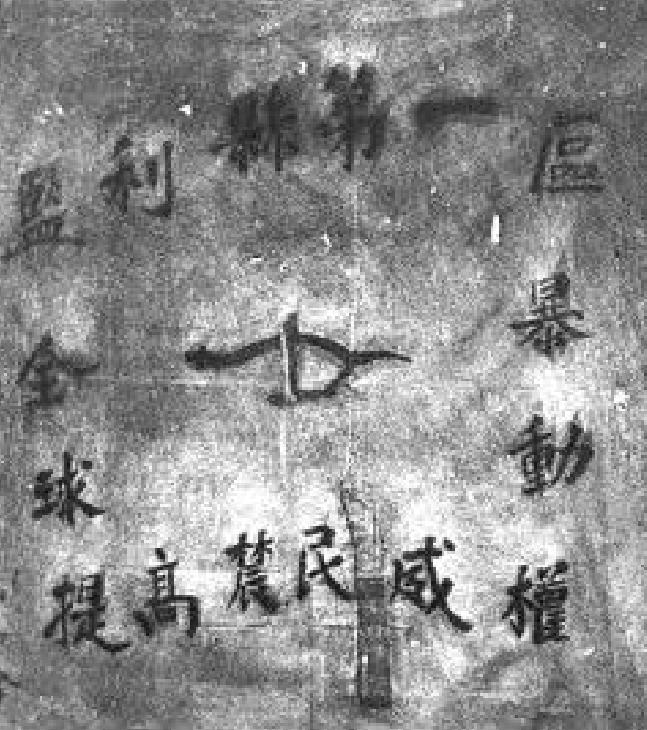 監利縣第一區
暴動
全球
提高農民威權